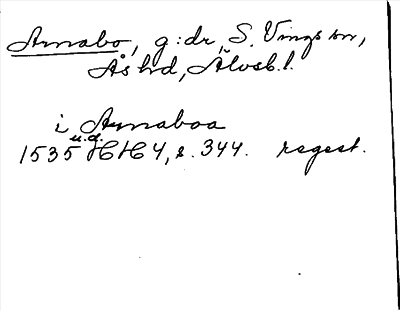 Arnabo, g:dr, S. Vings sn,
Ås hd, Älvsb.l.
i Arnaboa
u.d.
1535 HH 4, s. 344. regest.